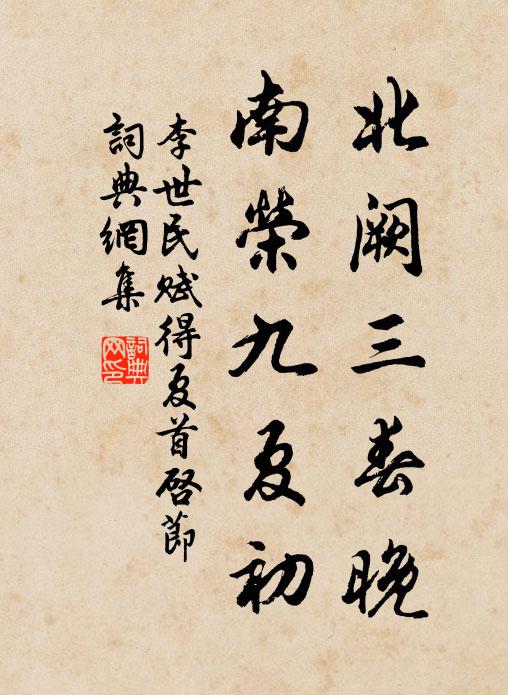 北闕三春晚
南榮九夏初
李世民賦得夏首啓節
詞典網集
詞典
网印